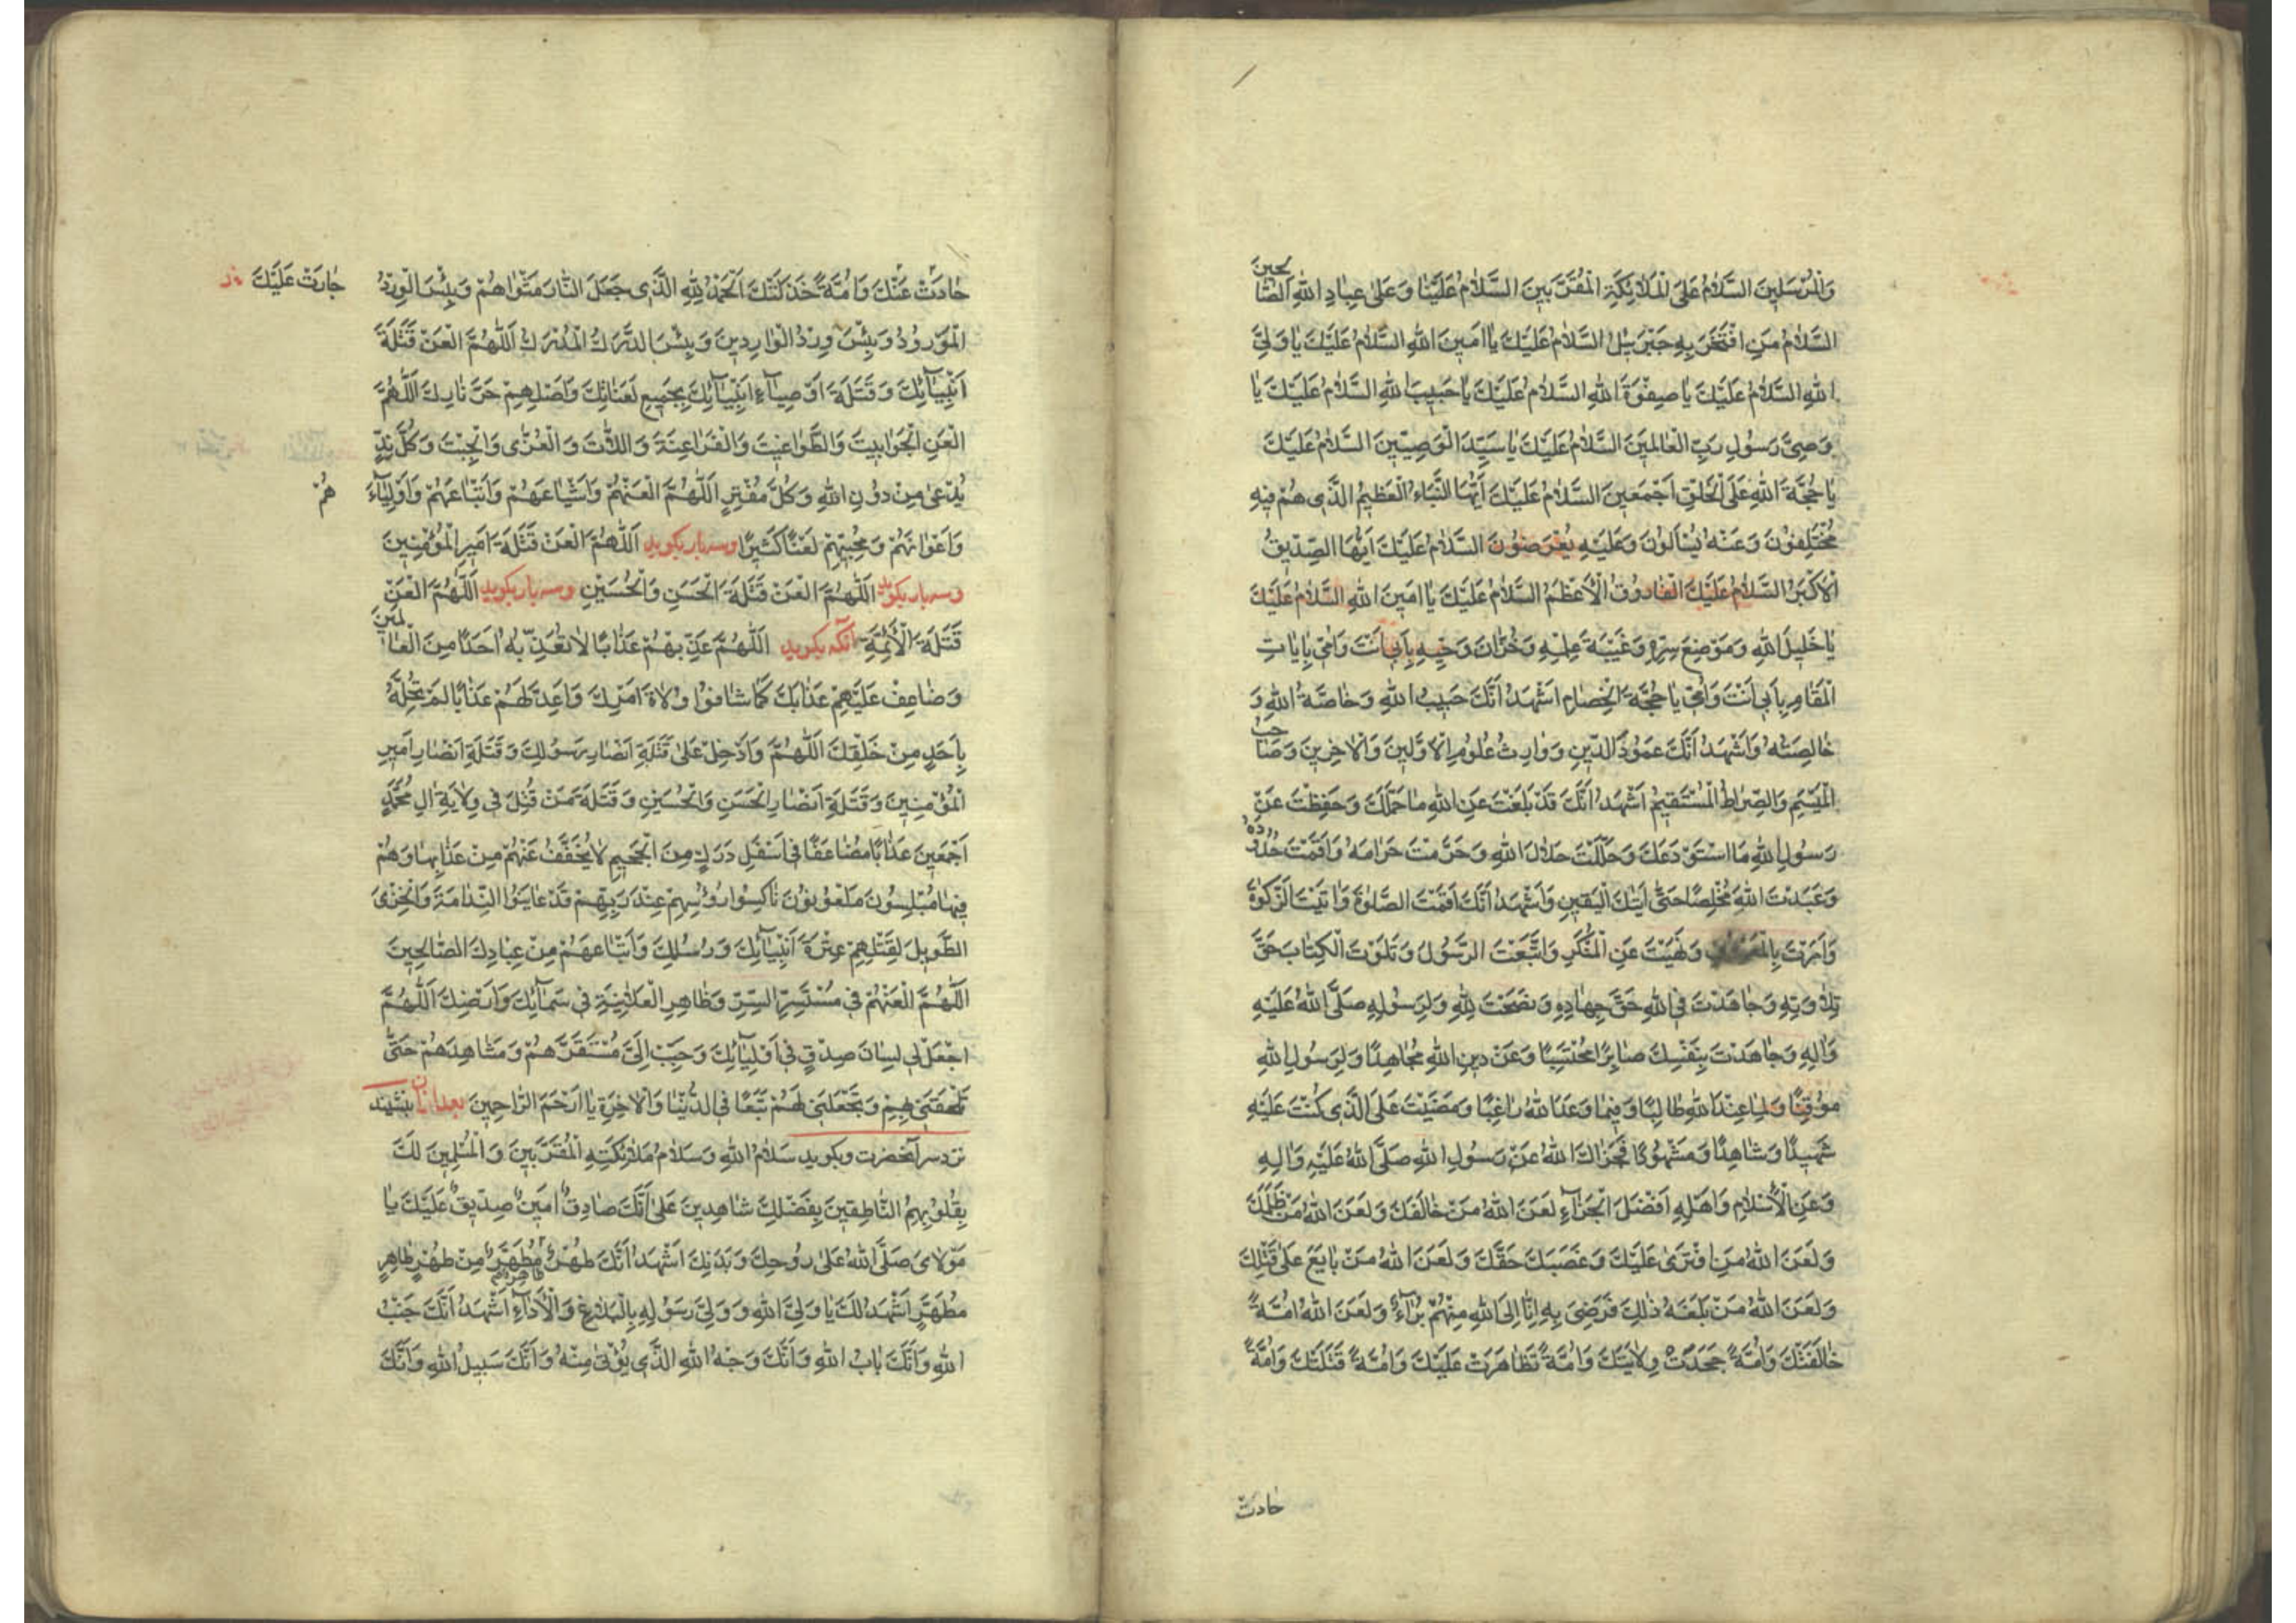 وَالْمُرْسَلِينَ السَّلَامُ عَلَى الْمَلَائِكَةِ الْمُقَرَّبِينَ السَّلَامُ عَلَيْنَا وَعَلَى عِبَادِ اللهِ الصَّالِحِينَ
السَّلَامُ مَنِ افْتَخَرَ بِهِ جَبْرَئِيلُ السَّلَامُ عَلَيْكَ يَا اَمِينَ اللهِ السَّلَامُ عَلَيْكَ يَا وَلِيَّ
اللهِ السَّلَامُ عَلَيْكَ يَا صِفْوَةَ اللهِ السَّلَامُ عَلَيْكَ يَا حَبِيبَ اللهِ السَّلَامُ عَلَيْكَ يَا
وَصِيَّ رَسُولِ رَبِّ الْعَالَمِينَ السَّلَامُ عَلَيْكَ يَا سَيِّدَ الْوَصِيِّينَ السَّلَامُ عَلَيْكَ
يَا حُجَّةَ اللهِ عَلَى الْخَلْقِ اَجْمَعِينَ السَّلَامُ عَلَيْكَ اَيُّهَا النَّبَاءُ الْعَظِيمُ الَّذِي هُمْ فِيهِ
مُخْتَلِفُونَ وَعَنْهُ يُسْأَلُونَ وَعَلَيْهِ يُعْرَضُونَ السَّلَامُ عَلَيْكَ اَيُّهَا الصِّدِّيقُ
الْاَكْبَرُ السَّلَامُ عَلَيْكَ الْفَارُوقُ الْاَعْظَمُ السَّلَامُ عَلَيْكَ يَا اَمِينَ اللهِ السَّلَامُ عَلَيْكَ
يَا خَلِيلَ اللهِ وَمَوْضِعَ سِرِّهِ وَعَيْبَةَ عِلْمِهِ وَخُزَّانَ وَحْيِهِ بِاَبِي اَنْتَ وَاُمِّي بَابَاتِ
الْمَقَامِ بِاَبِي اَنْتَ وَاُمِّي يَا حُجَّةَ الْخِصَامِ اَشْهَدُ اَنَّكَ حَبِيبُ اللهِ وَخَاصَّةُ اللهِ وَ
خَالِصَتُهُ وَاَشْهَدُ اَنَّكَ عَمُودُ الدِّينِ وَوَارِثُ عُلُومِ الْاَوَّلِينَ وَالْاٰخِرِينَ وَصَاحِبُ
الْمِيسَمِ وَالصِّرَاطِ الْمُسْتَقِيمِ اَشْهَدُ اَنَّكَ قَدْ بَلَّغْتَ عَنِ اللهِ مَا حَمَّلَكَ وَحَفِظْتَ عَنْ
رَسُولِ اللهِ مَا اسْتَوْدَعَكَ وَحَلَّلْتَ حَلَالَ اللهِ وَحَرَّمْتَ حَرَامَهُ وَاَقَمْتَ حُدُودَهُ
وَعَبَدْتَ اللهَ مُخْلِصًا حَتَّى اَتٰيكَ الْيَقِينِ وَاَشْهَدُ اَنَّكَ اَقَمْتَ الصَّلٰوةَ وَاٰتَيْتَ الزَّكٰوةَ
وَاَمَرْتَ وَنَهَيْتَ عَنِ الْمُنْكَرِ وَاتَّبَعْتَ الرَّسُولَ وَتَلَوْتَ الْكِتَابَ حَقَّ
تِلَاوَتِهِ وَجَاهَدْتَ فِي اللهِ حَقَّ جِهَادِهِ وَنَصَحْتَ لِلّٰهِ وَلِرَسُولِهِ صَلَّى اللهُ عَلَيْهِ
وَاٰلِهِ وَجَاهَدْتَ بِنَفْسِكَ صَابِرًا مُحْتَسِبًا وَعَنْ دِينِ اللهِ مُجَاهِدًا وَلِرَسُولِ اللهِ
مُوقِنًا وَلِمَا عِنْدَ اللهِ طَالِبًا وَفِيمَا وَعَدَ اللهُ رَاغِبًا وَمَضَيْتَ عَلَى الَّذِي كُنْتَ عَلَيْهِ
شَهِيدًا وَشَاهِدًا وَمَشْهُودًا فَجَزَاكَ اللهُ عَنْ رَسُولِ اللهِ صَلَّى اللهُ عَلَيْهِ وَاٰلِهِ
وَعَنِ الْاِسْلَامِ وَاَهْلِهِ اَفْضَلَ الْجَزَاءِ لَعَنَ اللهُ مَنْ خَالَفَكَ وَلَعَنَ اللهُ مَنْ ظَلَمَكَ
وَلَعَنَ اللهُ مَنِ افْتَرَى عَلَيْكَ وَغَصَبَكَ حَقَّكَ وَلَعَنَ اللهُ مَنْ بَايَعَ عَلَى قَتْلِكَ
وَلَعَنَ اللهُ مَنْ بَلَغَهُ ذٰلِكَ فَرَضِيَ بِهِ اِنَّا اِلَى اللهِ مِنْهُمْ بُرَاءٌ وَلَعَنَ اللهُ اُمَّةً
خَالَفَتْكَ وَاُمَّةً جَحَدَتْ وِلَايَتَكَ وَاُمَّةً تَظَاهَرَتْ عَلَيْكَ وَاُمَّةً قَتَلَتْكَ وَاُمَّةً
حَادَتْ
حَادَتْ عَنْكَ وَاُمَّةً خَذَلَتْكَ اَلْحَمْدُ لِلّٰهِ الَّذِي جَعَلَ النَّارَ مَثْوَاهُمْ وَبِئْسَ الْوِرْدُ
جَارَتْ عَلَيْكَ
الْمَوْرُودُ وَبِئْسَ وِرْدُ الْوَارِدِينَ وَبِئْسَ الدَّرَكُ الْمُدْرَكُ اَللّٰهُمَّ الْعَنْ قَتَلَةَ
اَنْبِيَائِكَ وَقَتَلَةَ اَوْصِيَاءِ اَنْبِيَائِكَ بِجَمِيعِ لَعَنَاتِكَ وَاَصْلِهِمْ حَرَّ نَارِكَ اَللّٰهُمَّ
الْعَنِ الْجَوَابِيتَ وَالطَّوَاغِيتَ وَالْفَرَاعِنَةَ وَاللَّاتَ وَالْعُزّٰى وَالْجِبْتَ وَكُلَّ نِدٍّ
يُدْعٰى مِنْ دُونِ اللهِ وَكُلَّ مُفْتَرٍ اَللّٰهُمَّ الْعَنْهُمْ وَاَشْيَاعَهُمْ وَاَتْبَاعَهُمْ وَاَوْلِيَاءَ
هُمْ
وَاَعْوَانَهُمْ وَمُحِبِّيهِمْ لَعْنًا كَثِيرًا وسه بار بگوید اَللّٰهُمَّ الْعَنْ قَتَلَةَ اَمِيرِ الْمُؤْمِنِينَ
وسه بار بگوید اَللّٰهُمَّ الْعَنْ قَتَلَةَ الْحَسَنِ وَالْحُسَيْنِ وسه بار بگوید اَللّٰهُمَّ الْعَنْ
قَتَلَةَ الْاَئِمَّةِ آنکه بگوید اَللّٰهُمَّ عَذِّبْهُمْ عَذَابًا لَا تُعَذِّبُهُ اَحَدًا مِنَ الْعَالَمِينَ
وَضَاعِفْ عَلَيْهِمْ عَذَابَكَ كَمَا شَاقُّوا وُلَاةَ اَمْرِكَ وَاَعِدَّ لَهُمْ عَذَابًا لَمْ تُحِلَّهُ
بِاَحَدٍ مِنْ خَلْقِكَ اَللّٰهُمَّ وَاَدْخِلْ عَلٰى قَتَلَةِ اَنْصَارِ رَسُولِكَ وَقَتَلَةِ اَنْصَارِ اَمِيرِ
الْمُؤْمِنِينَ وَقَتَلَةِ اَنْصَارِ الْحَسَنِ وَالْحُسَيْنِ وَقَتَلَةِ مَنْ قُتِلَ فِي وِلَايَةِ اٰلِ مُحَمَّدٍ
اَجْمَعِينَ عَذَابًا مُضَاعَفًا فِي اَسْفَلِ دَرَكٍ مِنَ الْجَحِيمِ لَا يُخَفَّفُ عَنْهُمْ مِنْ عَذَابِهَا وَهُمْ
فِيهَا مُبْلِسُونَ مَلْعُونُونَ نَاكِسُوا رُؤُسِهِمْ عِنْدَ رَبِّهِمْ قَدْ عَايَنُوا النَّدَامَةَ وَالْخِزْيَ
الطَّوِيلَ لِقَتْلِهِمْ عِتْرَةَ اَنْبِيَائِكَ وَرُسُلِكَ وَاَتْبَاعَهُمْ مِنْ عِبَادِكَ الصَّالِحِينَ
اَللّٰهُمَّ الْعَنْهُمْ فِي مُسْتَسِرِّ السِّرِّ وَظَاهِرِ الْعَلَانِيَةِ فِي سَمَائِكَ وَاَرْضِكَ اَللّٰهُمَّ
اجْعَلْ لِي لِسَانَ صِدْقٍ فِي اَوْلِيَائِكَ وَحَبِّبْ اِلَيَّ مُسْتَقَرَّهُمْ وَمَشَاهِدَهُمْ حَتَّى
تُلْحِقَنِي بِهِمْ وَتَجْعَلَنِي لَهُمْ تَبَعًا فِي الدُّنْيَا وَالْاٰخِرَةِ يَا اَرْحَمَ الرَّاحِمِينَ بعد ازان بنشیند
نزد سر آنحضرت و بگوید سَلَامُ اللهِ وَسَلَامُ مَلَائِكَتِهِ الْمُقَرَّبِينَ وَالْمُسْلِمِينَ لَكَ
بِقُلُوبِهِمُ النَّاطِقِينَ بِفَضْلِكَ شَاهِدِينَ عَلٰى اَنَّكَ صَادِقٌ اَمِينٌ صِدِّيقٌ عَلَيْكَ يَا
مَوْلَايَ صَلَّى اللهُ عَلٰى رُوحِكَ وَبَدَنِكَ اَشْهَدُ اَنَّكَ طُهْرٌ مُطَهَّرٌ مِنْ طُهْرٍ طَاهِرٍ
مُطَهَّرٍ اَشْهَدُ لَكَ يَا وَلِيَّ اللهِ وَوَلِيَّ رَسُولِهِ بِالْبَلَاغِ وَالْاَدَاءِ اَشْهَدُ اَنَّكَ جَنْبُ
اللهِ وَاَنَّكَ بَابُ اللهِ وَاَنَّكَ وَجْهُ اللهِ الَّذِي يُؤْتٰى مِنْهُ وَاَنَّكَ سَبِيلُ اللهِ وَاَنَّكَ